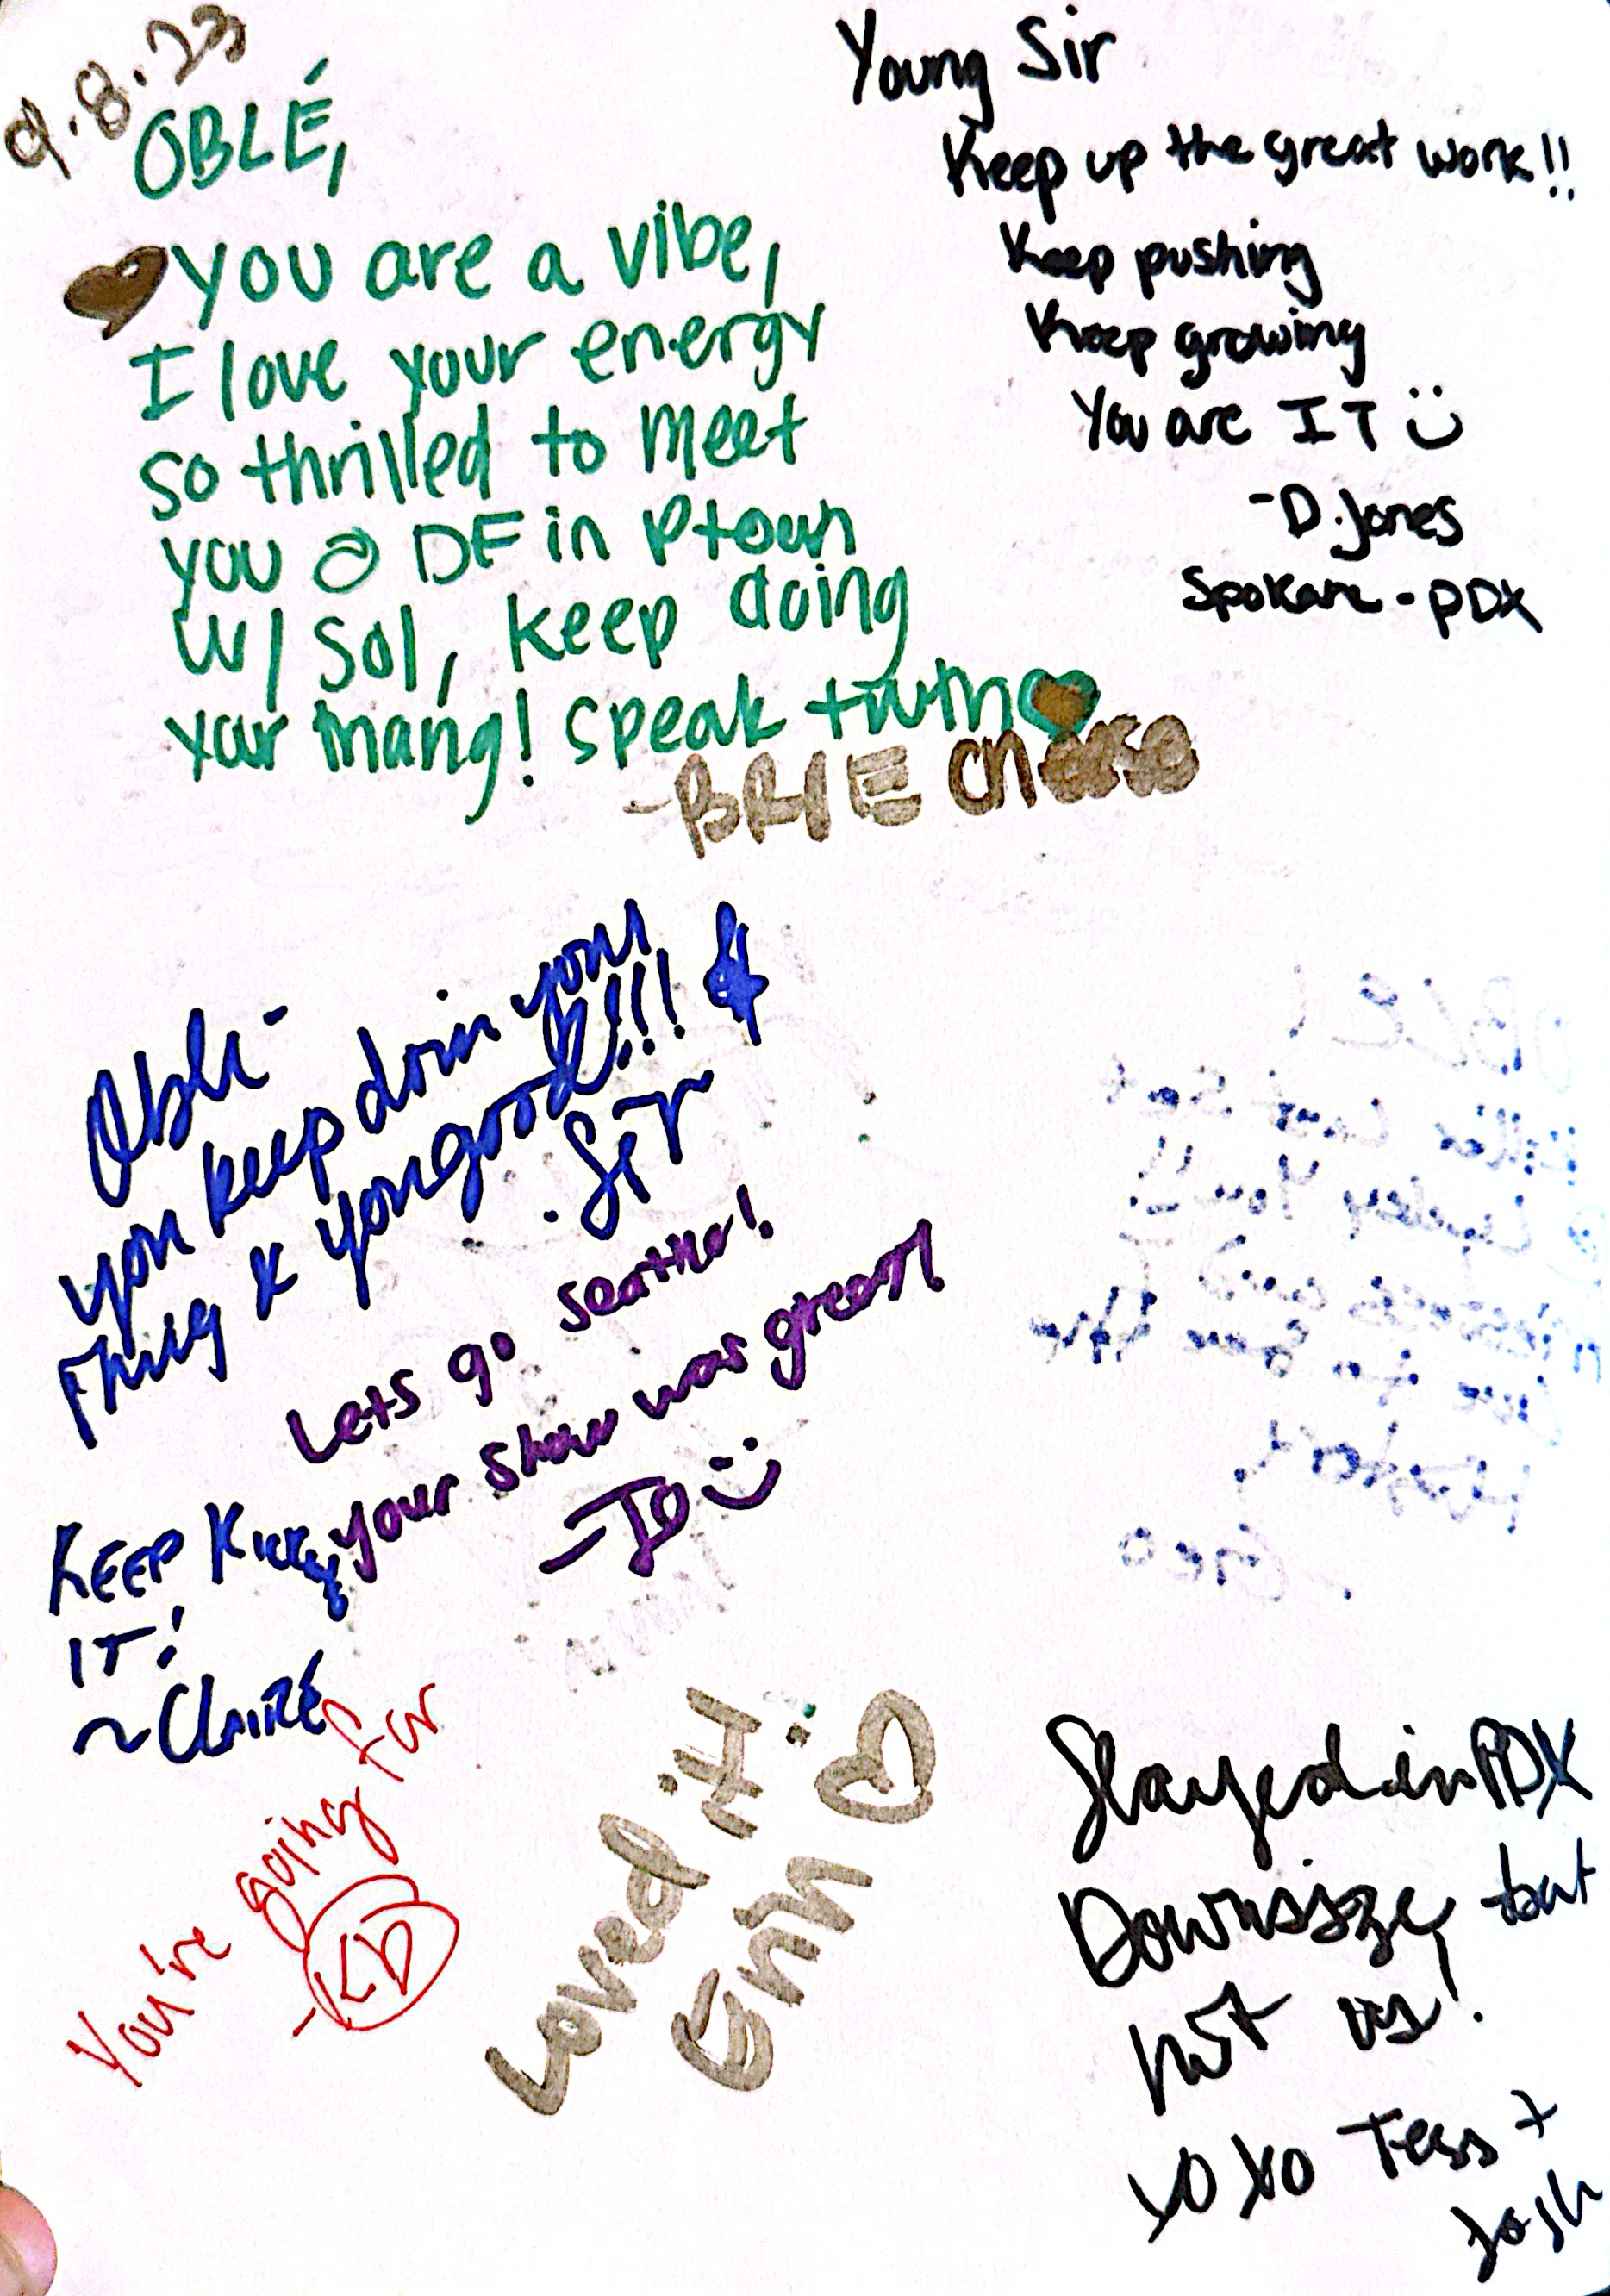 9.8.23
OBLÉ,
You are a vibe,
I love your energy
so thrilled to meet
you @ DF in Ptown
W/ Sol, keep doing
your thang! Speak truth
-BRIE cheese
Young Sir
Keep up the great work!!
Keep pushing
Keep growing
You are IT
-D. Jones
Spokane - PDX
Oblé-
you keep doin your
thing &
Lets go Seattle!
your show was great!
-Jo
KEEP
IT!
~CLAIRE
You're going far
Loved it!
Erin
Slayed in PDX
Downsize, but
not us!
XOXO Tess +
Josh